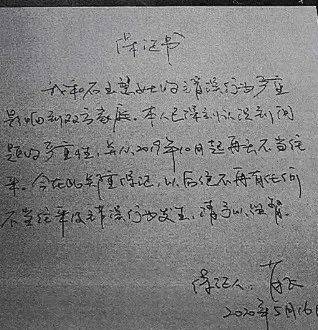 保证书
我和石玉莲女士的错误行为严重
影响到双方家庭。本人已深刻认识到问
题的严重性,并从2019年10月起再无不当往
来。今在此郑重保证,以后绝不再有任何
不当往来及错误行为发生,请予以监督。
保证人:
2020年5月16日